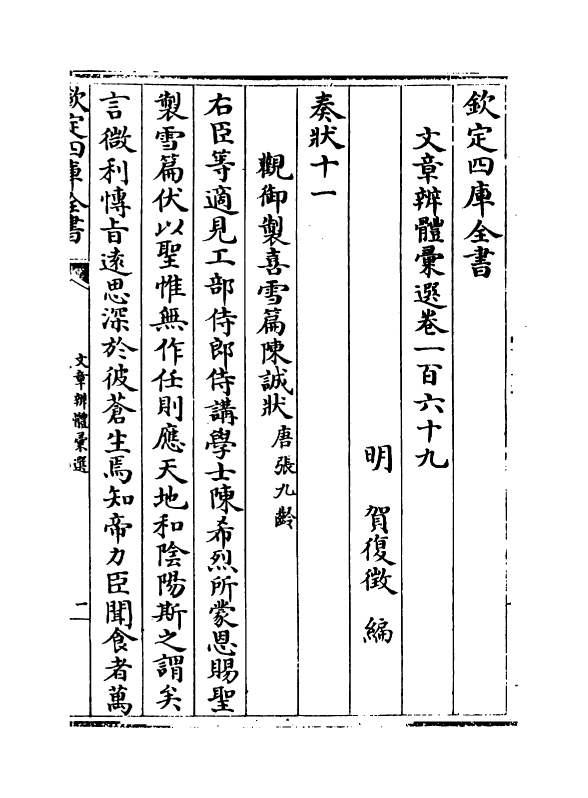 欽定四庫全書
文章辨體彚選卷一百六十九
明 賀復徵 編
奏狀十一
觀御製喜雪篇陳誠狀唐張九齡
右臣等適見工部侍郎侍講學士陳希烈所蒙恩賜聖
製雪篇伏以聖惟無作任則應天地和陰陽斯之謂矣
言微利慱旨逺思深於彼蒼生焉知帝力臣聞食者萬
欽定四庫全書
文章辨體彚選
二